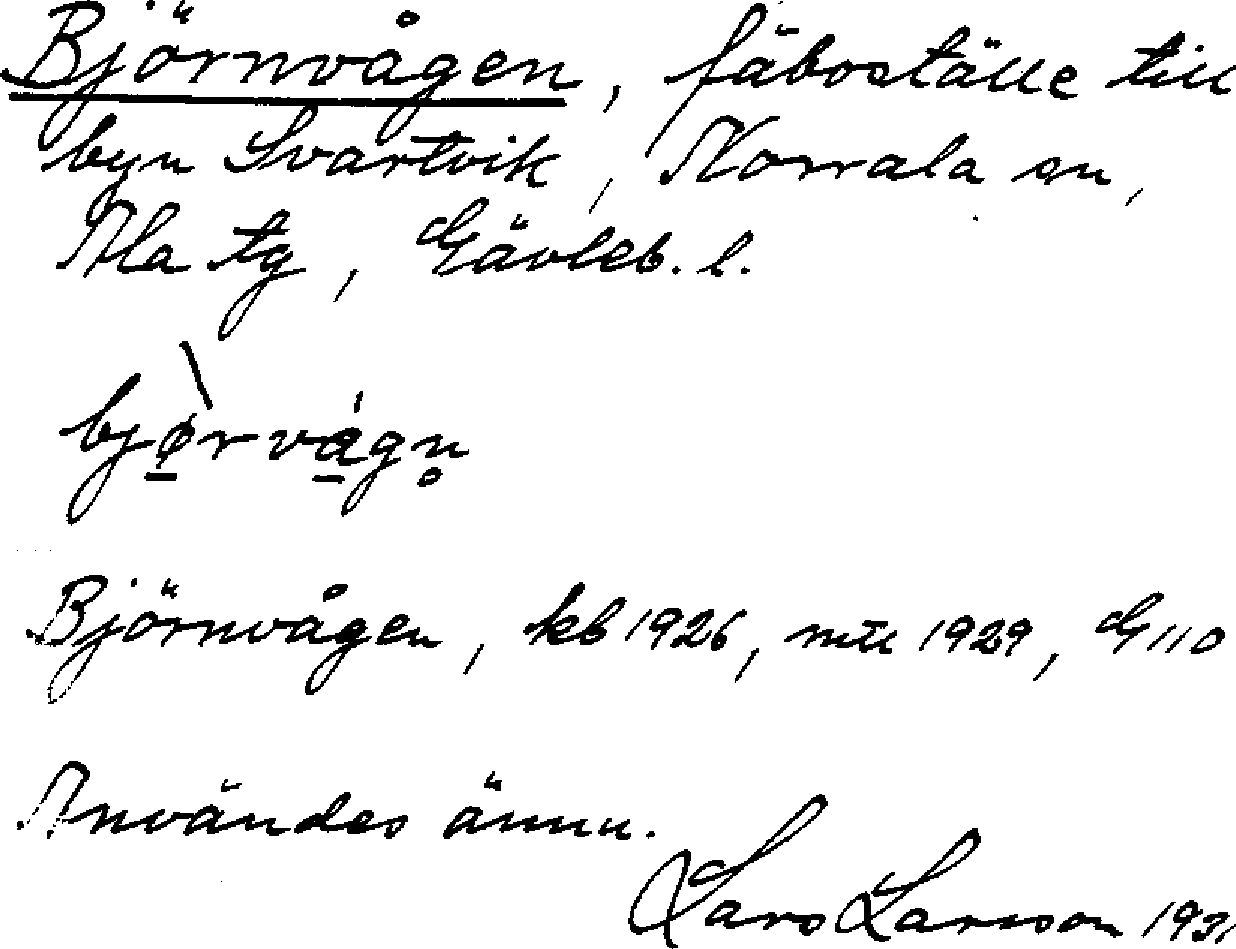 Björnvågen, fäboställe till
byn Svartvik, Norrala sn,
Ala tg, Gävleb. l.
bjø̱̀rvǻ̱gn̥
Björnvågen, kb 1926, mtl 1929, G 110
Användes ännu.
Lars Larsson 1931